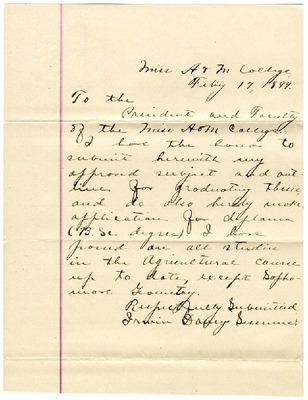 Miss A & M College
Feb'y 17, 1899.
To the
President and Faculty
of the Miss A & M College
I have the honor to
submit herewith my
approved subject and out
line for graduating thesis,
and do also hereby make
application for diploma
(B. Sc. degree) I have
passed on all studies
in the Agricultural course
up to date, except Sopho-
more Geometry.
Respectfully Submitted
Irwin